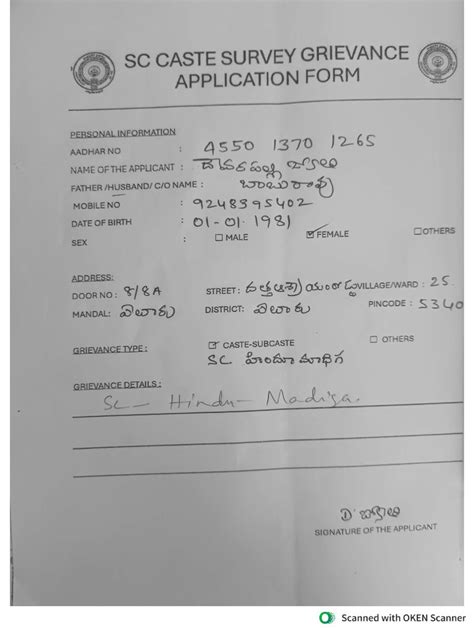 SC CASTE SURVEY GRIEVANCE
APPLICATION FORM
PERSONAL INFORMATION
AADHAR NO : 4550 1370 1265
NAME OF THE APPLICANT :
FATHER /HUSBAND/ C/O NAME : బాబురావు
MOBILE NO : 9248395402
DATE OF BIRTH : 01-01-1981
SEX : MALE FEMALE OTHERS
ADDRESS:
DOOR NO : 8/8A STREET : VILLAGE/WARD : 25
MANDAL: ఏలూరు DISTRICT: ఏలూరు PINCODE : 5340
GRIEVANCE TYPE : CASTE-SUBCASTE OTHERS
SC. హిందూ మాదిగ
GRIEVANCE DETAILS :
SC - Hindu - Madiga.
SIGNATURE OF THE APPLICANT
Scanned with OKEN Scanner